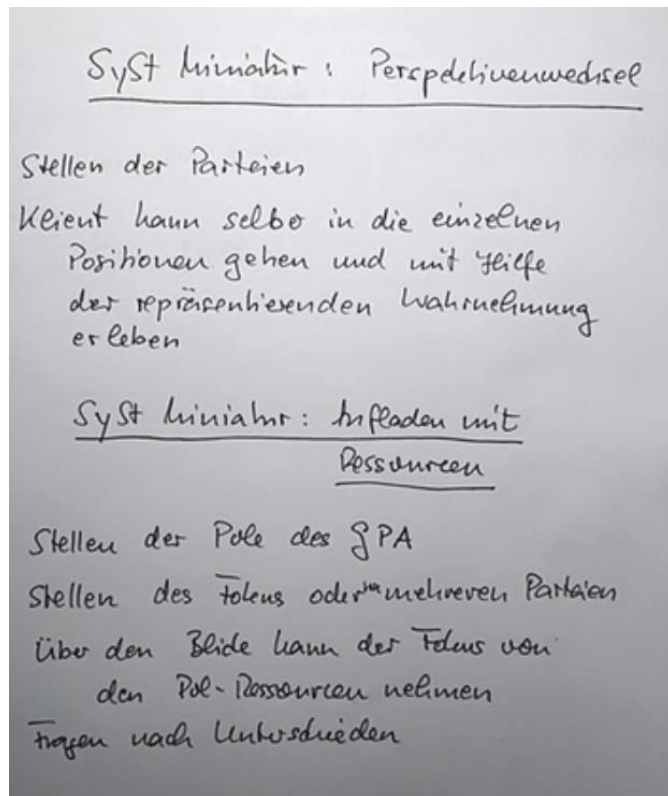 SySt Miniatur: Perspektivenwechsel
Stellen der Parteien
Klient kann selbo in die einzelnen
Positionen gehen und mit Hilfe
der repräsentierenden Wahrnehmung
erleben
SySt Miniatur: Aufladen mit
Ressourcen
Stellen der Pole des GPA
Stellen des Fokus oder mehreren Parteien
Über den Blick kann der Fokus von
den Pol-Ressourcen nehmen
Fragen nach Unterschieden